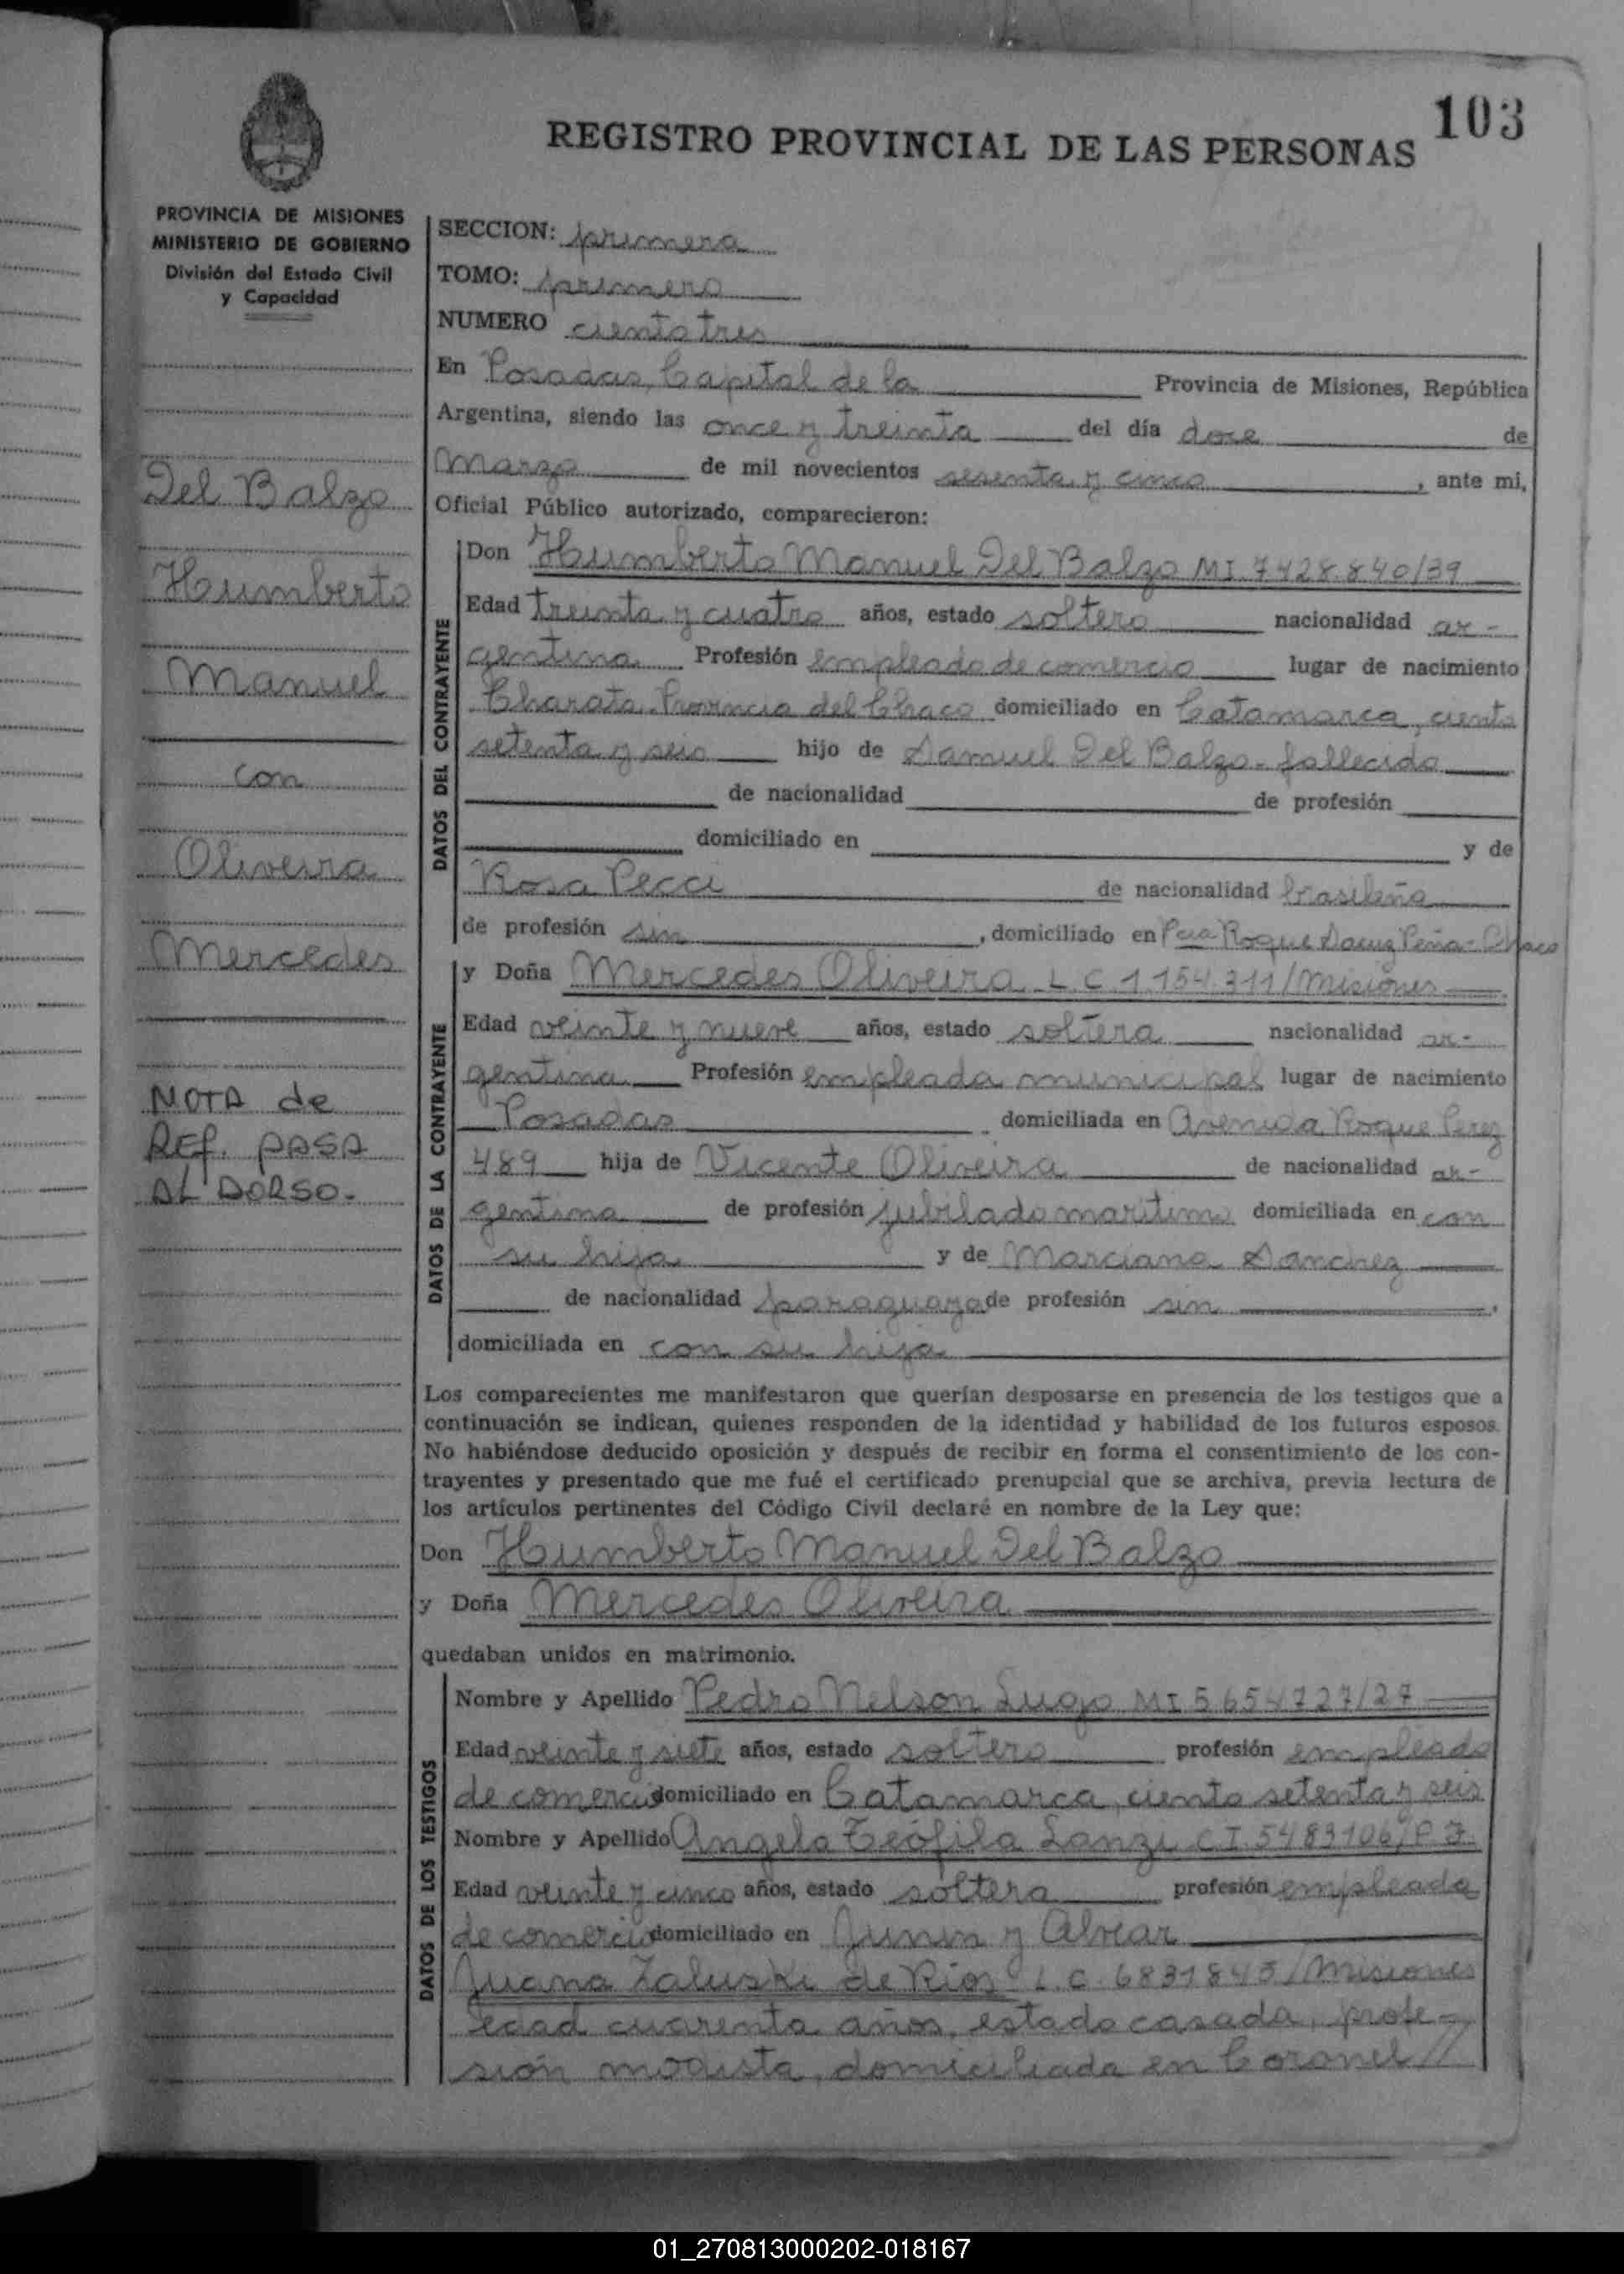 103
REGISTRO PROVINCIAL DE LAS PERSONAS
PROVINCIA DE MISIONES
MINISTERIO DE GOBIERNO
División del Estado Civil
y Capacidad
Del Balzo
Humberto
Manuel
con
Oliveira
Mercedes
NOTA de
REF. PASA
AL DORSO.-
SECCION: primera
TOMO: primero
NUMERO ciento tres
En Posadas, Capital de la Provincia de Misiones, República
Argentina, siendo las once y treinta del día doce de
Marzo de mil novecientos sesenta y cinco, ante mi,
Oficial Público autorizado, comparecieron:
DATOS DEL CONTRAYENTE
Don Humberto Manuel Del Balzo MI. 7428.840/39
Edad treinta y cuatro años, estado soltero nacionalidad ar-
gentina Profesión empleado de comercio lugar de nacimiento
Charata. Provincia del Chaco domiciliado en Catamarca, ciento
setenta y seis hijo de Samuel Del Balzo - fallecido
de nacionalidad de profesión
domiciliado en y de
Rosa Pecci de nacionalidad brasileña
de profesión sin, domiciliado en Pcia Roque Saenz Peña - Chaco
DATOS DE LA CONTRAYENTE
y Doña Mercedes Oliveira L.C 1.154.311/Misiones
Edad veinte y nueve años, estado soltera nacionalidad ar-
gentina Profesión empleada municipal lugar de nacimiento
Posadas domiciliada en Avenida Roque Perez
489 hija de Vicente Oliveira de nacionalidad ar-
gentina de profesión jubilado maritimo domiciliada en con
su hija y de Marciana Sanchez
de nacionalidad paraguaya de profesión sin,
domiciliada en con su hija
Los comparecientes me manifestaron que querían desposarse en presencia de los testigos que a
continuación se indican, quienes responden de la identidad y habilidad de los futuros esposos.
No habiéndose deducido oposición y después de recibir en forma el consentimiento de los con-
trayentes y presentado que me fué el certificado prenupcial que se archiva, previa lectura de
los artículos pertinentes del Código Civil declaré en nombre de la Ley que:
Don Humberto Manuel Del Balzo
y Doña Mercedes Oliveira
quedaban unidos en matrimonio.
DATOS DE LOS TESTIGOS
Nombre y Apellido Pedro Nelson Lugo MI 5654727/27
Edad veinte y siete años, estado soltero profesión empleado
de comercio domiciliado en Catamarca, ciento setenta y seis
Nombre y Apellido Angela Teófila Lanzi C I 5483106/P F.
Edad veinte y cinco años, estado soltera profesión empleada
de comercio domiciliado en Junin y Alvear
Juana Zaluski de Rios L.C. 6831843/Misiones
edad cuarenta años, estado casada, profe-
sión modista, domiciliada en Coronel //
01_270813000202-018167